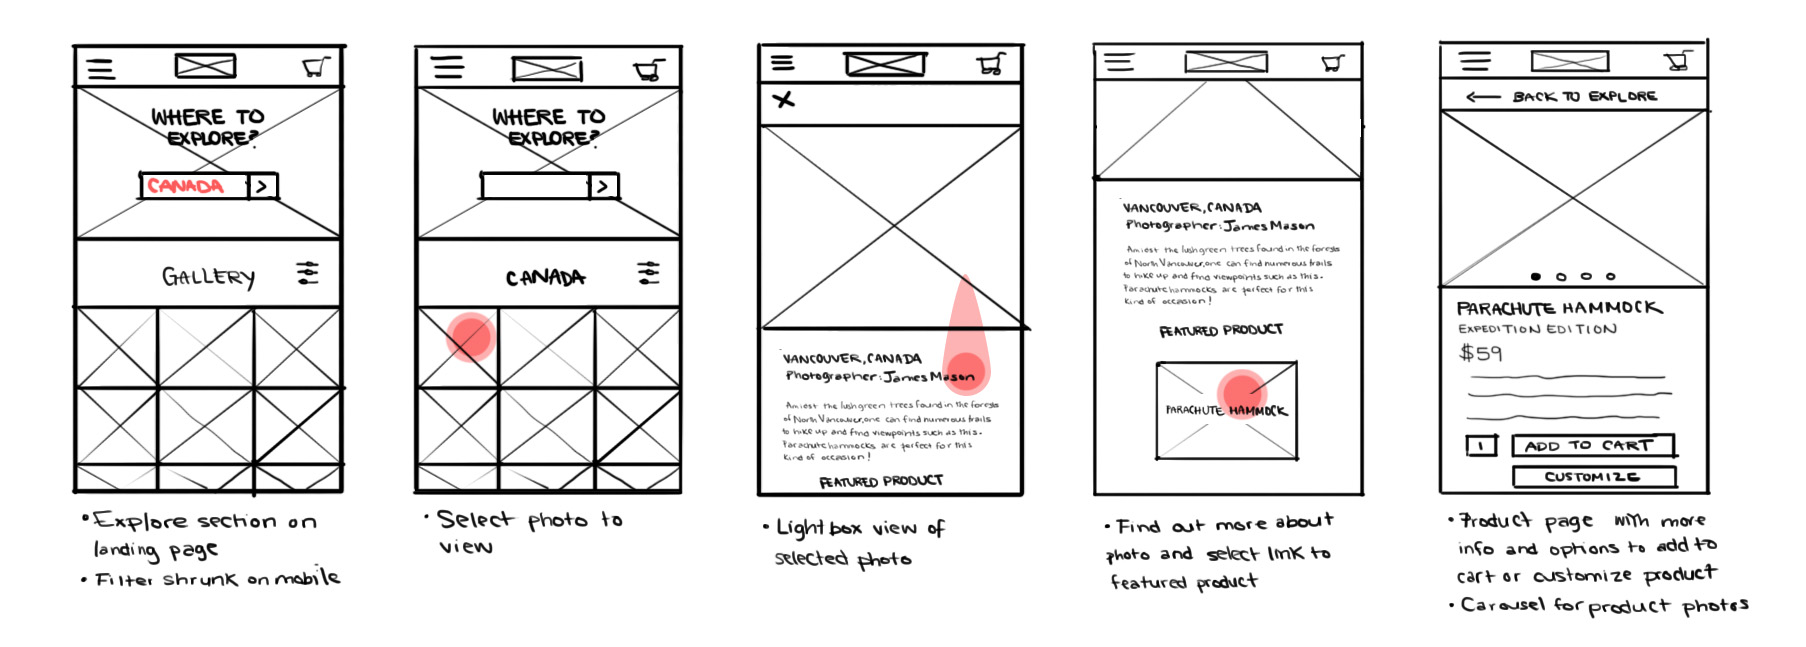 WHERE TO
EXPLORE?
CANADA
>
GALLERY
• Explore section on
landing page
• Filter shrunk on mobile
WHERE TO
EXPLORE?
>
CANADA
• Select photo to
view
X
VANCOUVER, CANADA
Photographer: James Mason
Amiest the lush green trees found in the forests
of North Vancouver, one can find numerous trails
to hike up and find viewpoints such as this.
Parachute hammocks are perfect for this
kind of occasion!
FEATURED PRODUCT
• Lightbox view of
selected photo
VANCOUVER, CANADA
Photographer: James Mason
Amiest the lush green trees found in the forests
of North Vancouver, one can find numerous trails
to hike up and find viewpoints such as this.
Parachute hammocks are perfect for this
kind of occasion!
FEATURED PRODUCT
PARACHUTE HAMMOCK
• Find out more about
photo and select link to
featured product
← BACK TO EXPLORE
PARACHUTE HAMMOCK
EXPEDITION EDITION
$59
1
ADD TO CART
CUSTOMIZE
• Product page with more
info and options to add to
cart or customize product
• Carousel for product photos